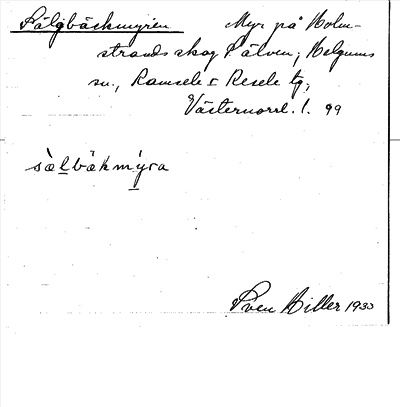 Sälgbäckmyren Myr på Holm-
strands skog S älven; Helgums
sn., Ramsele o Resele tg,
Västernorrl. l. 99
sàl̲bäkmý̲ra
Sven Hiller 1930